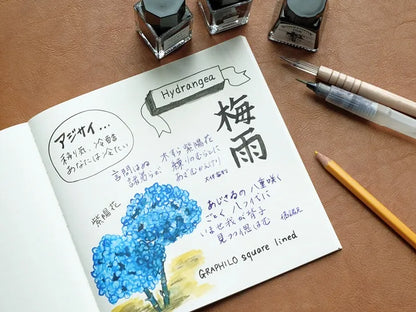 Hydrangea
梅雨
アジサイ…
移り気、冷酷
あなたは冷たい
言問はぬ
木すら紫陽花
諸弟らが
練りのむらとに
あざむかえけり
大伴家持
紫陽花
あぢさゐの 八重咲く
ごとく 八つ代に
いませ我が背子
見つつ偲はむ
橘諸兄
GRAPHILO square lined